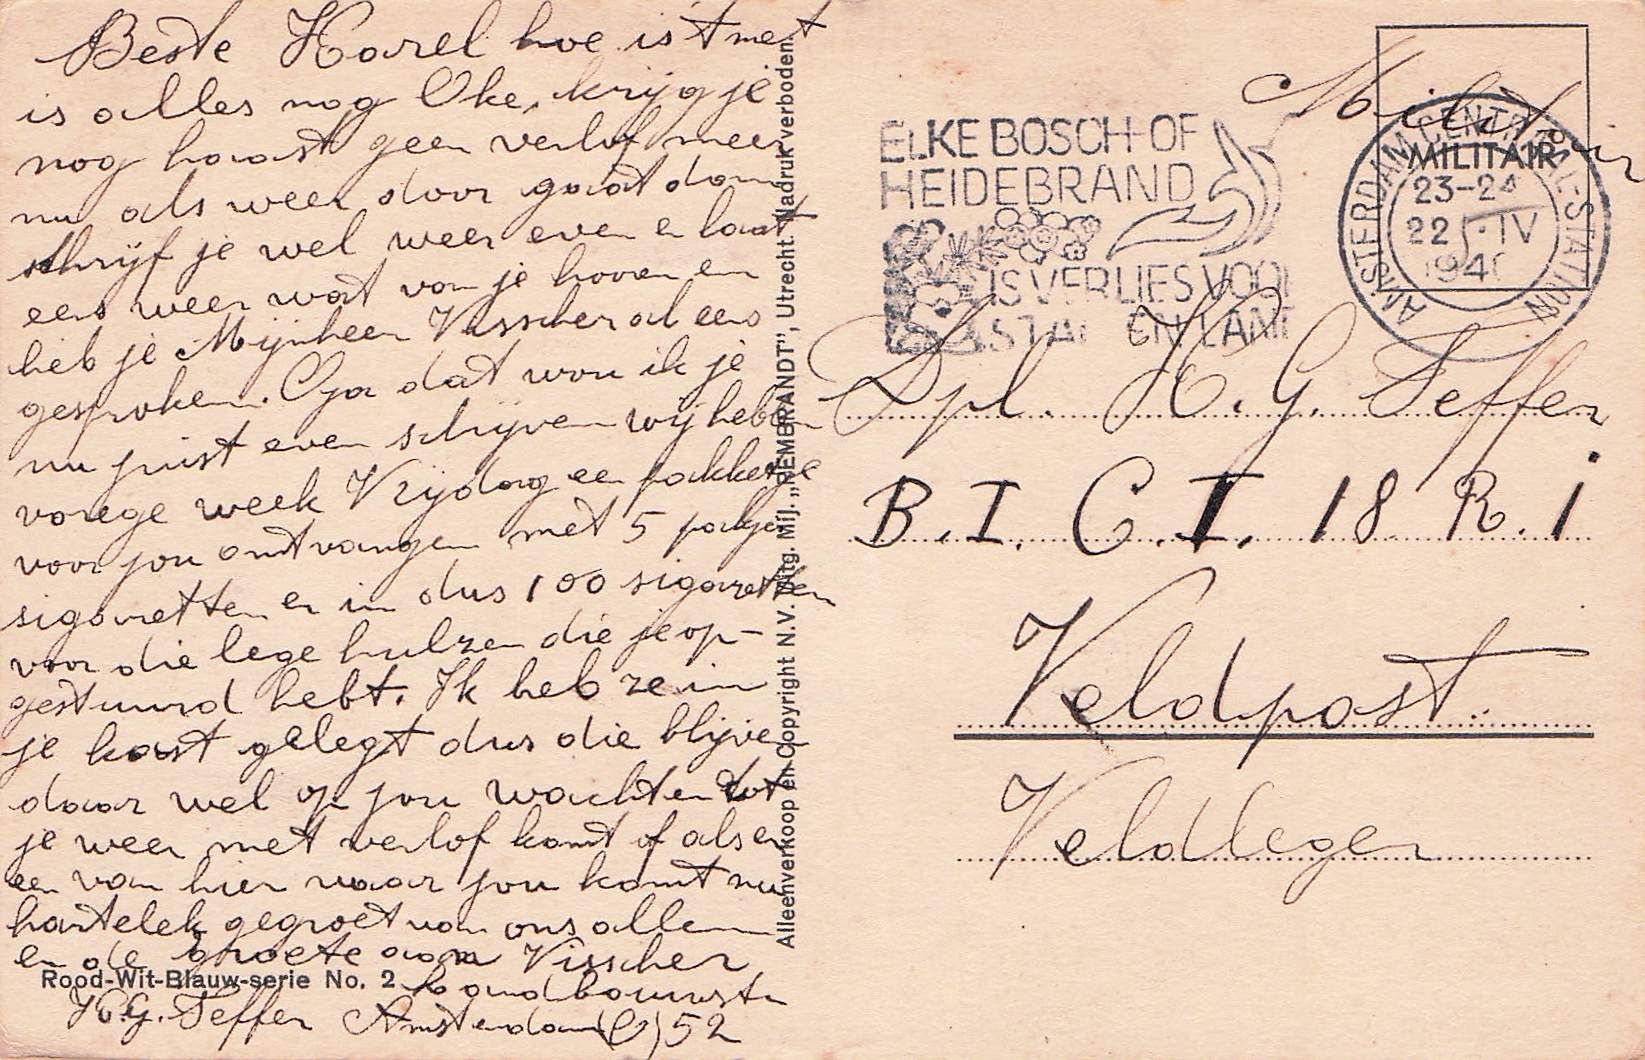 Beste Karel hoe is 't met
is alles nog Oke, krijg je
nog haast geen verlof meer
nu als weer door gaat dan
schrijf je wel weer even en laat
eens weer wat van je hooren en
heb je Mijnheer Visscher al eens
gesproken. O ja dat wou ik je
nu juist even schrijven wij hebben
vorege week Vrijdag een pakketje
voor jou ontvangen met 5 pakjes
sigaretten er in dus 100 sigaretten
voor die lege hulzen die je op-
gestuurd hebt. Ik heb ze in
je kast gelegt dus die blijven
daar wel op jou wachten tot
je weer met verlof komt of als er
een van hier naar jou komt nu
hartelek gegroet van ons allen
en de groete aan Visscher
Rood-Wit-Blauw-serie No. 2
H.G. Feffer Amsterdam (O) 52
Alleenverkoop en Copyright N.V. Uitg. Mij. „REMBRANDT", Utrecht. Nadruk verboden.
ELKE BOSCH- OF
HEIDEBRAND
IS VERLIES VOOR
STAD EN LAND
Militair
MILITAIR
AMSTERDAM CENTRAAL-STATION
23-24
22 IV
1940
Dpl. H. G. Feffer
B.I. C.I. 18 R.I
Veldpost.
Veldleger